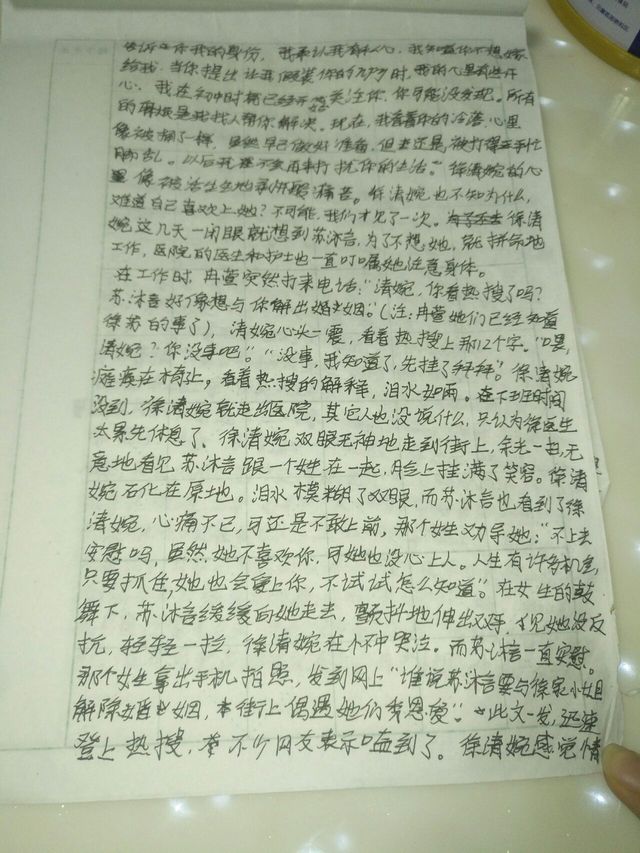 告诉了你我的身份，我承认我有私心，我知道你不想嫁
给我，当你提出让我假装你的 时，我的心里有些开
心，我在初中时就已经开始关注你，你可能没发现。所有
的麻烦是我找人帮你解决。现在，我看着你的冷落心里
像被捅了一样，虽然早已做好准备，但去还是被打得手忙
脚乱。以后我在不会再来打扰你的生活。”徐清婉的心
里像被活生生地 痛苦。徐清婉也不知为什么，
难道自己喜欢上她？不可能，我们才见了一次。徐清
婉这几天一闭眼就想到苏沐言，为了不想她，就拼命地
工作，医院的医生和护士也一直叮嘱她注意身体。
在工作时，冉萱突然打来电话：“清婉，你看热搜了吗？
苏沐言好像想与你解出婚姻。”（注：冉萱她们已经知道
徐苏的事了），清婉心头一震，看着热搜上那12个字。“喂，
清婉？你没事吧”。“没事，我知道了，先挂了拜拜”。徐清婉
瘫痪在椅上，看着热搜的解释，泪水如雨。在下班时间
没到，徐清婉就走出医院，其它人也没说什么，只认为徐医生
太累先休息了。徐清婉双眼无神地走到街上，余光一扫，无
意地看见苏沐言跟一个姓在一起，脸上挂满了笑容。徐清
婉石化在原地。泪水模糊了双眼，而苏沐言也看到了徐
清婉，心痛不已，可还是不敢上前，那个女生劝导她：“不上去
安慰吗，虽然她不喜欢你，可她也没心上人。人生有许多机会，
只要抓住，她也会爱上你，不试试怎么知道”。在女生的鼓
舞下，苏沐言缓缓向她走去，颤抖地伸出双手，见她没反
抗，轻轻一拉，徐清婉在怀中哭泣。而苏沐言一直安慰。
那个女生拿出手机拍照，发到网上“谁说苏沐言要与徐家小姐
解除婚姻，本街上偶遇她们秀恩爱”。此文一发，迅速
登上热搜，不少网友表示嗑到了。徐清婉感觉情